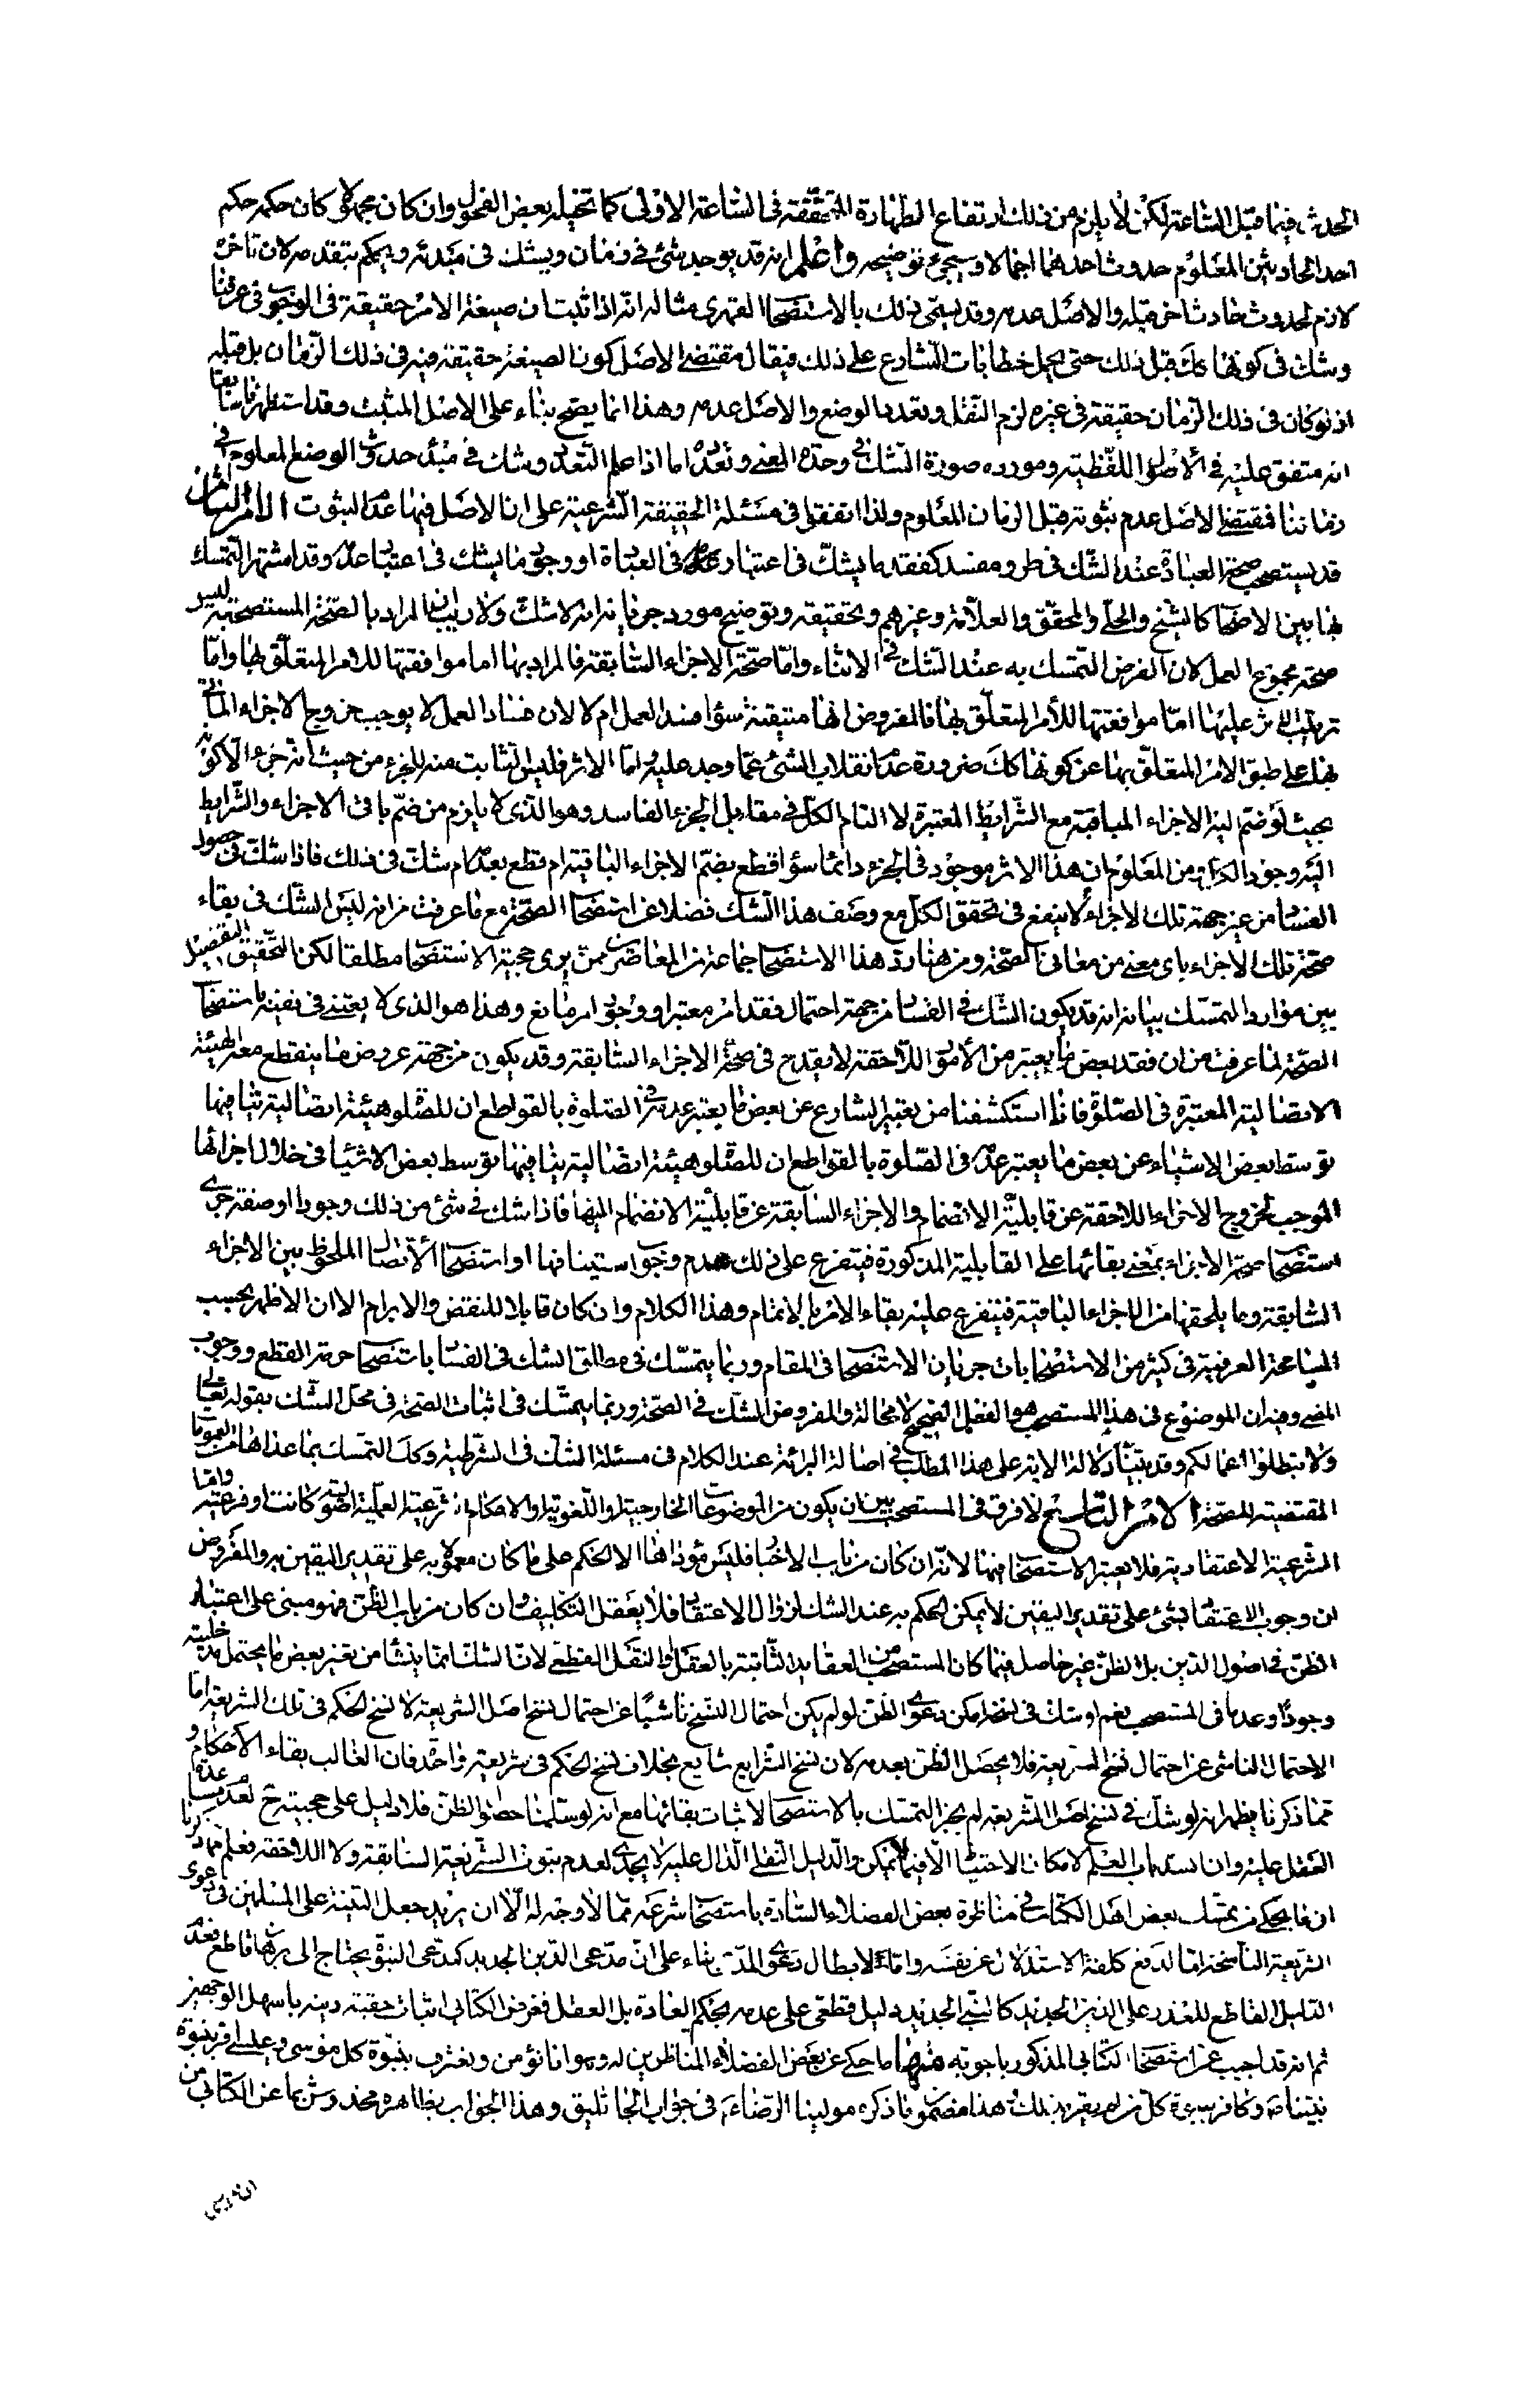 الحدث فيما قبل الساعة لكن لا يلزم من ذلك ارتفاع الطهارة المتحققة فى الساعة الاولى كما تخيله بعض الفحول وان كان مجهولا كان حكمه حكم
احد الحادثين المعلوم حدوث احدهما اجمالا وسيجئ توضيحه واعلم انه قد يوجد شئ فى زمان ويشك فى مبدئه ويحكم بتقدمه لان تاخره
لازم لحدوث حادث اخر قبله والاصل عدمه وقد يسمى ذلك بالاستصحاب القهقرى مثاله انه اذا ثبت ان صيغة الامر حقيقة فى الوجوب فى عرفنا
وشك فى كونها كك قبل ذلك حتى يحمل خطابات الشارع على ذلك فيقال مقتضى الاصل كون الصيغة حقيقة فيه فى ذلك الزمان بل قبله
اذ لو كان فى ذلك الزمان حقيقة فى غيره لزم النقل وتعدد الوضع والاصل عدمه وهذا انما يصح بناء على الاصل المثبت وقد استظهرنا سابقا
انه متفق عليه فى الاصول اللفظية ومورده صورة الشك فى وحدة المعنى وتعدده اما اذا علم التعدد وشك فى مبدء حدوث الوضع المعلوم فى
زماننا فمقتضى الاصل عدم ثبوته قبل الزمان المعلوم ولذا اتفقوا فى مسئلة الحقيقة الشرعية على ان الاصل فيها عدم الثبوت الامر الثامن
قد يستصحب صحة العبادة عند الشك فى طرو مفسد كفقد ما يشك فى اعتباره فى العبادة او وجود ما يشك فى اعتبار عدمه وقد اشتهر التمسك
بها بين الاصحاب كالشيخ والحلى والمحقق والعلامة وغيرهم وتحقيقه وتوضيح مورد جريانه انه لا شك ولا ريب ان المراد بالصحة المستصحبة ليس
صحة مجموع العمل لان الفرض التمسك به عند الشك فى الاثناء واما صحة الاجزاء السابقة فالمراد بها اما موافقتها للامر المتعلق بها واما
ترتيب الاثر عليها اما موافقتها للامر المتعلق بها فالمفروض انها متيقنة سواء فسد العمل ام لا لان فساد العمل لا يوجب خروج الاجزاء الماتى
بها على طبق الامر المتعلق بها عن كونها كك ضرورة عدم انقلاب الشئ عما وجد عليه واما الاثر فليس الثابت منه للجزء من حيث انه جزء الا كونه
بحيث لو ضم اليه الاجزاء الباقية مع الشرايط المعتبرة لالتام الكل فى مقابل الجزء الفاسد وهو الذى لا يلزم من ضم باقى الاجزاء والشرايط
اليه وجود الكل ومن المعلوم ان هذا الاثر موجود فى الجزء دائما سواء قطع بضم الاجزاء الباقية ام قطع بعدمه ام شك فى ذلك فاذا شك فى حصول
الفساد من غير جهة تلك الاجزاء لا ينفع فى تحقق الكل مع وصف هذا الشك فضلا عن استصحاب الصحة مع ما عرفت من انه ليس الشك فى بقاء
صحة تلك الاجزاء باى معنى من معانى الصحة ومن هنا رد هذا الاستصحاب جماعة من المعاصرين ممن يرى حجية الاستصحاب مطلقا لكن التحقيق التفصيل
بين موارد التمسك بيانه انه قد يكون الشك فى الفساد من جهة احتمال فقد امر معتبر او وجود امر مانع وهذا هو الذى لا يعتنى فى نفيه باستصحاب
الصحة لما عرفت من ان فقد بعض ما يعتبر من الامور اللاحقة لا يقدح فى صحة الاجزاء السابقة وقد يكون من جهة عروض ما ينقطع معه الهيئة
الاتصالية المعتبرة فى الصلوة فاذا استكشفنا من تعبير الشارع عن بعض ما يعتبر عدمه فى الصلوة بالقواطع ان للصلوة هيئة اتصالية ينافيها
توسط بعض الاشياء عن بعض ما يعتبر عدمه فى الصلوة بالقواطع ان للصلوة هيئة اتصالية ينافيها توسط بعض الاشياء فى خلال اجزائها
الموجب لخروج الاجزاء اللاحقة عن قابلية الانضمام والاجزاء السابقة عن قابلية الانضمام اليها فاذا شك فى شئ من ذلك وجودا او صفة جرى
استصحاب صحة الاجزاء بمعنى بقائها على القابلية المذكورة فيتفرع على ذلك عدم وجوب استينافها او استصحاب الاتصال الملحوظ بين الاجزاء
السابقة وما يلحقها من الاجزاء الباقية فيتفرع عليه بقاء الامر بالاتمام وهذا الكلام وان كان قابلا للنقض والابرام الا ان الاظهر بحسب
المسامحة العرفية فى كثير من الاستصحابات جريان الاستصحاب فى المقام وربما يتمسك فى مطلق الشك فى الفساد باستصحاب حرمة القطع ووجوب
المضى وفيه ان الموضوع فى هذا المستصحب هو الفعل الصحيح لا محالة والمفروض الشك فى الصحة وربما يتمسك فى اثبات الصحة فى محل الشك بقوله تعالى
ولا تبطلوا اعمالكم وقد بينا دلالة الاية على هذا المطلب فى اصالة البرائة عند الكلام فى مسئلة الشك فى الشرطية وكك التمسك بما عداها من العمومات
المقتضية للصحة الامر التاسع لا فرق فى المستصحب بين ان يكون من الموضوعات الخارجية او اللغوية او الاحكام الشرعية العملية اصولية كانت او فرعية واما
الشرعية الاعتقادية فلا يعتبر الاستصحاب فيها لانه ان كان من باب الاخبار فليس مؤداها الا الحكم على ما كان معمولا به على تقدير اليقين به والمفروض
ان وجوب الاعتقاد بشئ على تقدير اليقين لا يمكن الحكم به عند الشك لزوال الاعتقاد فلا يعقل التكليف وان كان من باب الظن فهو مبنى على اعتبار
الظن فى اصول الدين بل الظن غير حاصل فيما كان المستصحب من العقايد الثابتة بالعقل والنقل القطعى لان الشك انما ينشأ من تغير بعض ما يحتمل مدخليته
وجودا وعدما فى المستصحب نعم لو شك فى نسخه امكن دعوى الظن لو لم يكن احتمال النسخ ناشئا عن احتمال نسخ اصل الشريعة لا نسخ الحكم فى تلك الشريعة اما
الاحتمال الناشى عن احتمال نسخ الشريعة فلا يحصل الظن بعدمه لان نسخ الشرايع شايع بخلاف نسخ الحكم فى شريعة واحدة فان الغالب بقاء الاحكام و
مما ذكرنا يظهر انه لو شك فى نسخ اصل الشريعة لم يجز التمسك بالاستصحاب لاثبات بقائها مع انه لو سلمنا حصول الظن فلا دليل على حجيته ح لعدم مساعدة
العقل عليه وان انسد باب العلم لامكان الاحتياط الا فيما لا يمكن والدليل النقلى الدال عليه لا يجدى لعدم ثبوت الشريعة السابقة ولا اللاحقة فعلم مما ذكرنا
ان ما يحكى من تمسك بعض اهل الكتاب فى مناظرة بعض الفضلاء السادة باستصحاب شرعه مما لا وجه له الا ان يريد جعل البينة على المسلمين فى دعوى
الشريعة الناسخة اما لدفع كلفة الاستدلال عن نفسه واما لابطال دعوى المدعى بناء على ان مدعى الدين الجديد كمدعى النبوة يحتاج الى برهان قاطع فعدم
الدليل القاطع للعذر على الدين الجديد كالنبى الجديد دليل قطعى على عدمه بحكم العادة بل العقل فغرض الكتابى اثبات حقية دينه باسهل الوجهين
ثم انه قد اجيب عن استصحاب الكتابى المذكور باجوبة منها ما حكى عن بعض الفضلاء المناظرين له وهو انا نؤمن ونعترف بنبوة كل موسى وعيسى اقر بنبوة
نبينا ص وكافر بنبوة كل من لم يقر بذلك وهذا مضمون ما ذكره مولينا الرضا ع فى جواب الجاثليق وهذا الجواب بظاهره مخدوش بما عن الكتابى من